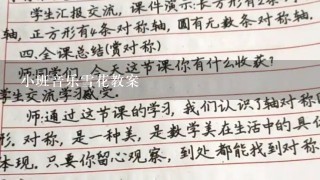 学生汇报交流，课件演示：长方形有2条
轴，正方形有4条对称轴，圆有无数条对称轴
四.全课总结(赏对称)
师:同学们，今天这节课你有什么收获？
小班音乐雪花教案
学生交流学习感
师:通过这节课的学习，我们认识了轴对称
形.对称，是一种美，是数学美在生活中的具
体现.只要你留心观察，到处都能找到对称